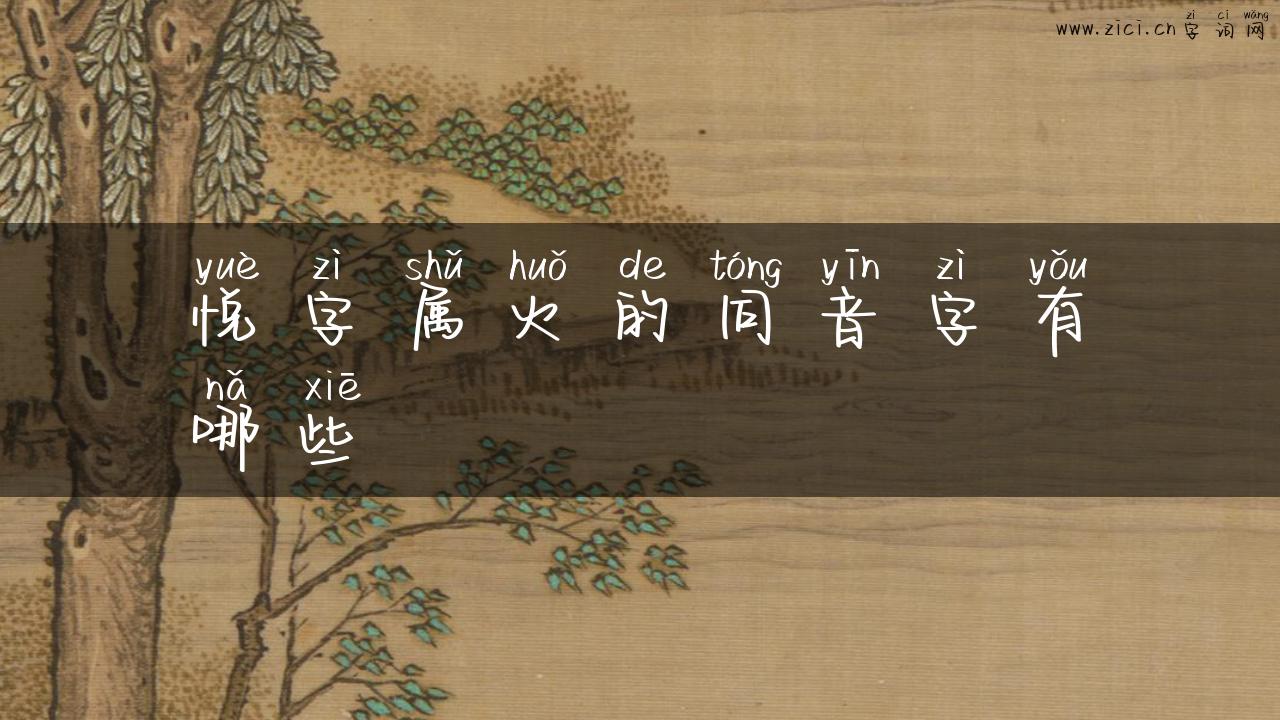 zì cí wǎng
www.zici.cn 字词网
yuè zì shǔ huǒ de tóng yīn zì yǒu
悦字属火的同音字有
nǎ xiē
哪些